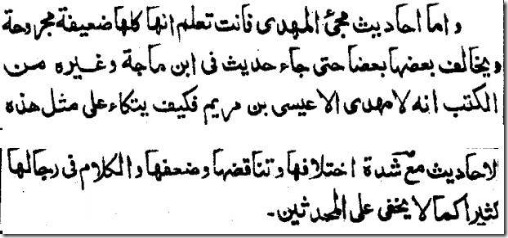 واما احاديث مجئ المهدى فانت تعلم انها كلها ضعيفة مجروحة
ويخالف بعضها بعضا حتى جاء حديث فى ابن ماجة وغيره من
الكتب انه لا مهدى الا عيسى بن مريم فكيف يتكاء على مثل هذه
لاحاديث مع شدة اختلافها وتناقضها وضعفها والكلام فى رجالها
كثيرا كما لا يخفى على المحدثين-